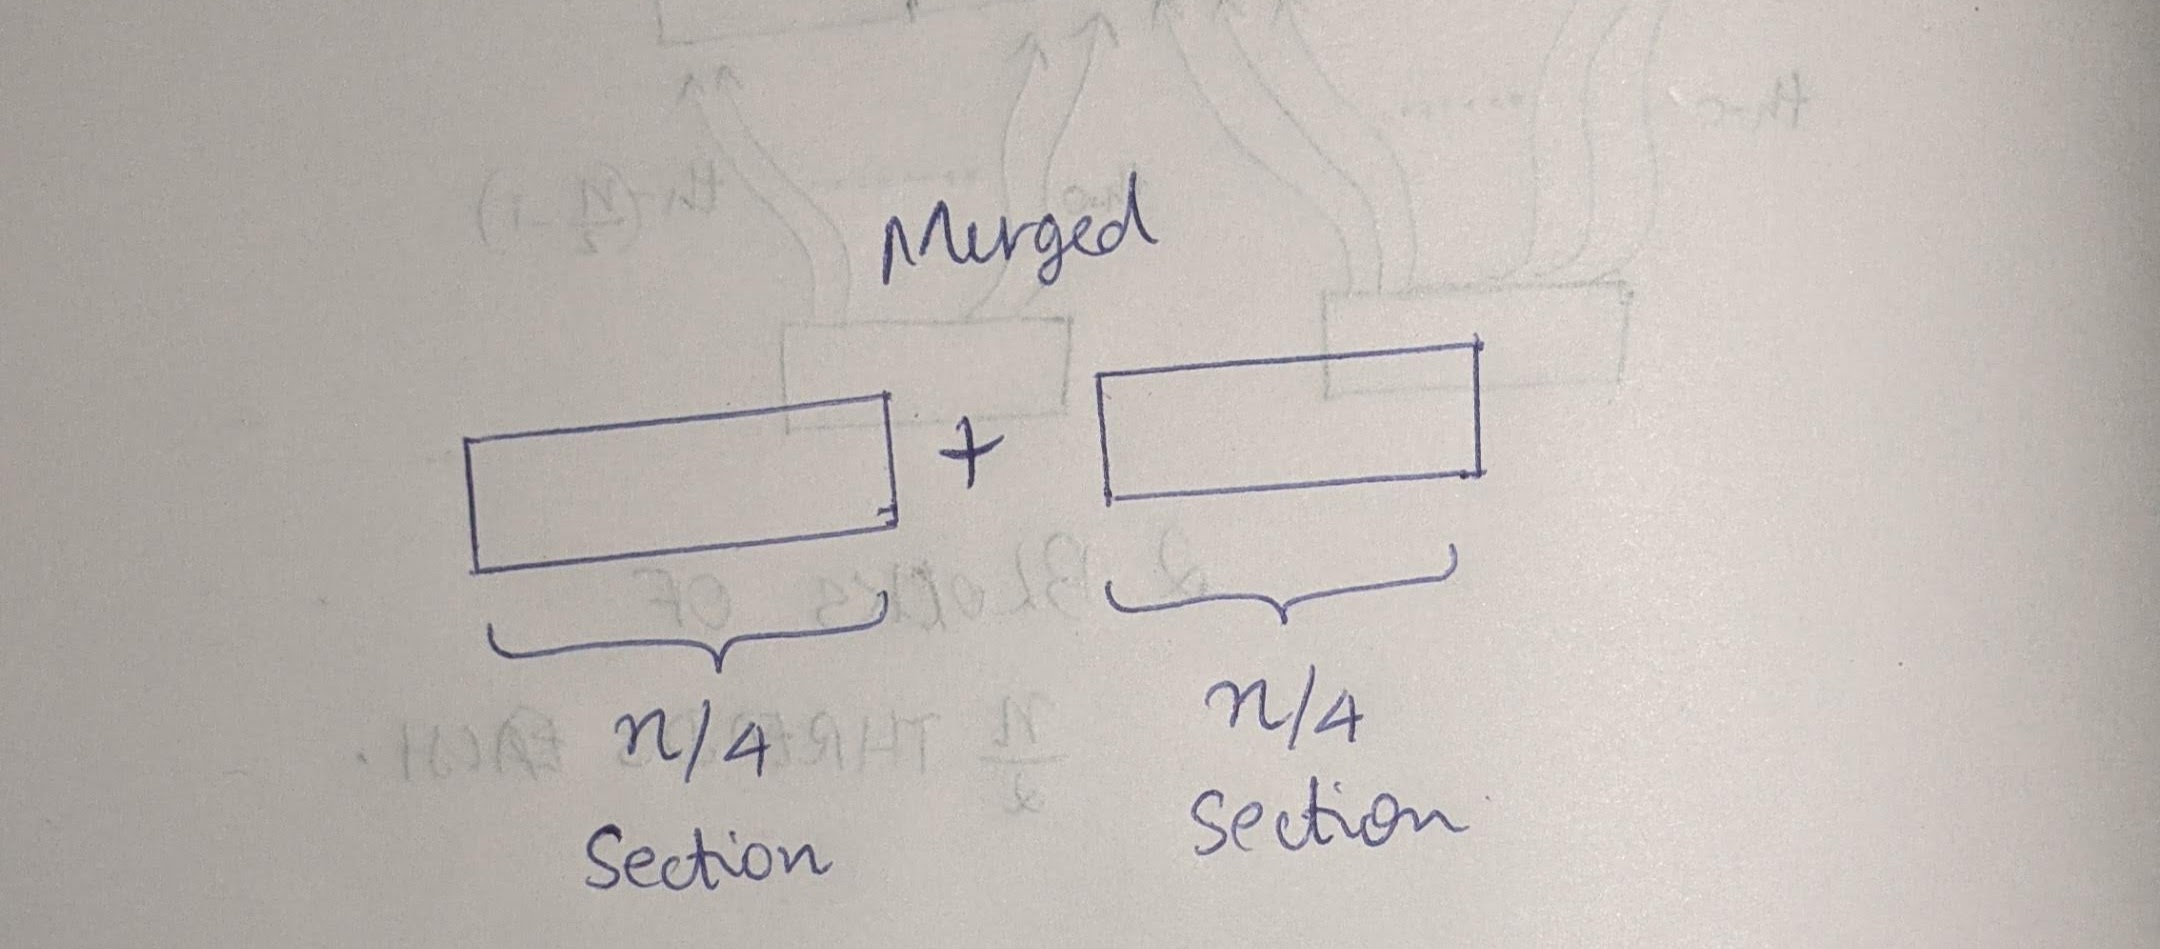 Merged
+
n/4
Section
n/4
Section